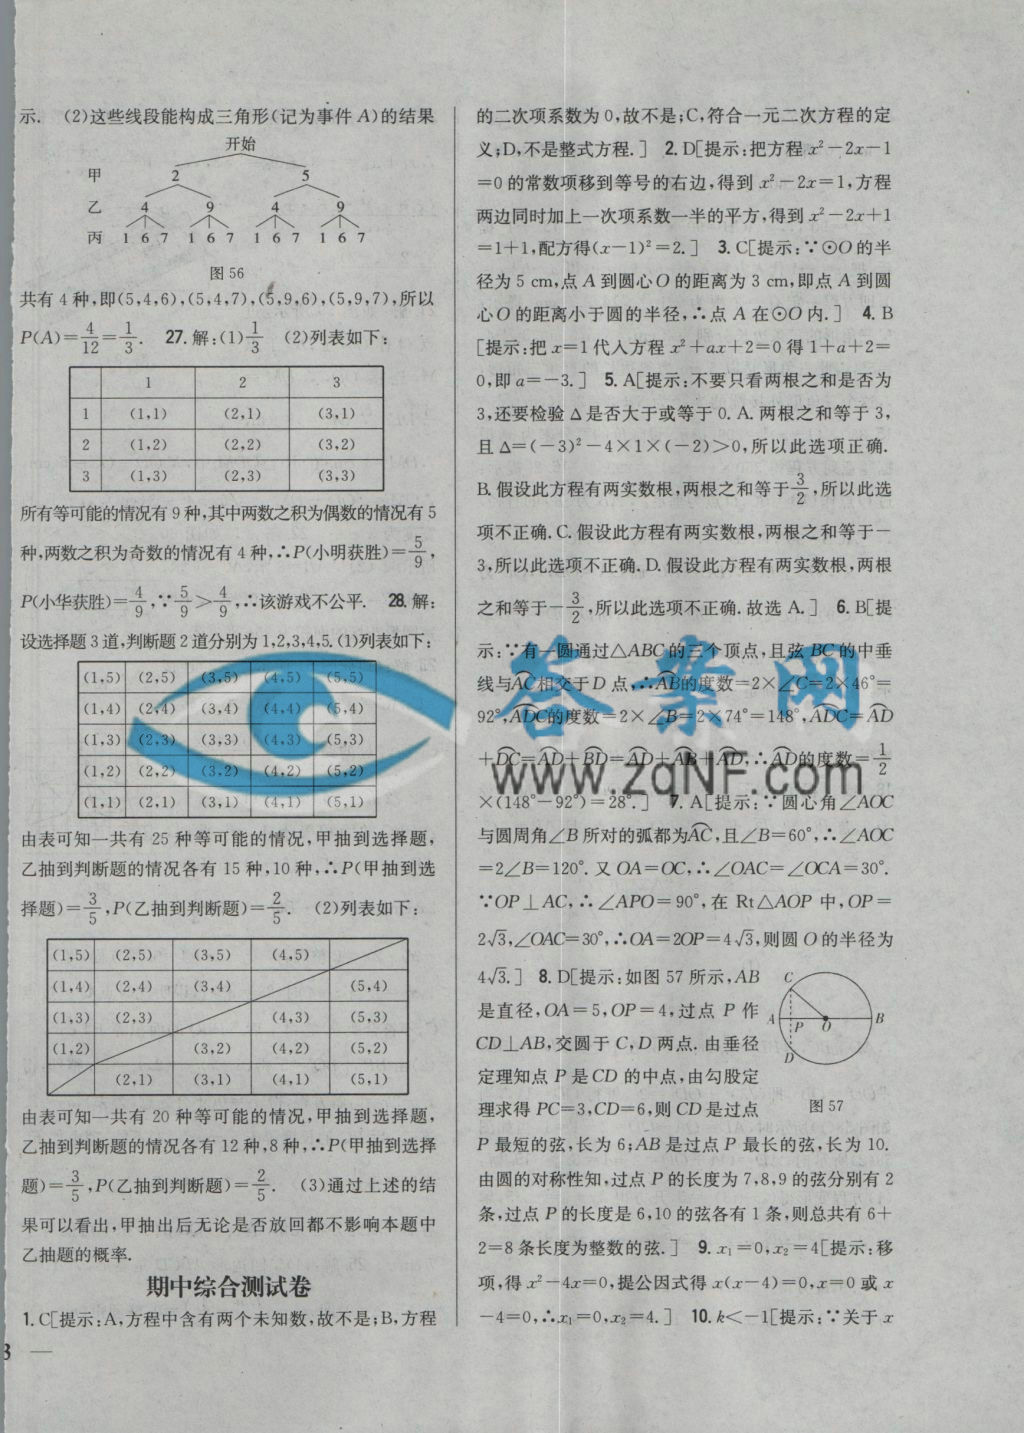 示. (2)这些线段能构成三角形(记为事件 A)的结果
开始
甲 2 5
乙 4 9 4 9
丙 1 6 7 1 6 7 1 6 7 1 6 7
图 56
共有 4 种,即(5,4,6),(5,4,7),(5,9,6),(5,9,7),所以
P(A)=4/12=1/3. 27.解:(1)1/3 (2)列表如下:
1 2 3
1 (1,1) (2,1) (3,1)
2 (1,2) (2,2) (3,2)
3 (1,3) (2,3) (3,3)
所有等可能的情况有 9 种,其中两数之积为偶数的情况有 5
种,两数之积为奇数的情况有 4 种,∴P(小明获胜)=5/9,
P(小华获胜)=4/9,∵5/9>4/9,∴该游戏不公平. 28.解:
设选择题 3 道,判断题 2 道分别为 1,2,3,4,5.(1)列表如下:
(1,5) (2,5) (3,5) (4,5) (5,5)
(1,4) (2,4) (3,4) (4,4) (5,4)
(1,3) (2,3) (3,3) (4,3) (5,3)
(1,2) (2,2) (3,2) (4,2) (5,2)
(1,1) (2,1) (3,1) (4,1) (5,1)
由表可知一共有 25 种等可能的情况,甲抽到选择题,
乙抽到判断题的情况各有 15 种,10 种,∴P(甲抽到选
择题)=3/5,P(乙抽到判断题)=2/5. (2)列表如下:
(1,5) (2,5) (3,5) (4,5)
(1,4) (2,4) (3,4) (5,4)
(1,3) (2,3) (4,3) (5,3)
(1,2) (3,2) (4,2) (5,2)
(2,1) (3,1) (4,1) (5,1)
由表可知一共有 20 种等可能的情况,甲抽到选择题,
乙抽到判断题的情况各有 12 种,8 种,∴P(甲抽到选择
题)=3/5,P(乙抽到判断题)=2/5. (3)通过上述的结
果可以看出,甲抽出后无论是否放回都不影响本题中
乙抽题的概率.
期中综合测试卷
1.C[提示:A,方程中含有两个未知数,故不是;B,方程
3 —
的二次项系数为 0,故不是;C,符合一元二次方程的定
义;D,不是整式方程.] 2.D[提示:把方程 x²-2x-1
=0 的常数项移到等号的右边,得到 x²-2x=1,方程
两边同时加上一次项系数一半的平方,得到 x²-2x+1
=1+1,配方得(x-1)²=2.] 3.C[提示:∵⊙O 的半
径为 5 cm,点 A 到圆心 O 的距离为 3 cm,即点 A 到圆
心 O 的距离小于圆的半径,∴点 A 在⊙O 内.] 4.B
[提示:把 x=1 代入方程 x²+ax+2=0 得 1+a+2=
0,即 a=-3.] 5.A[提示:不要只看两根之和是否为
3,还要检验 Δ 是否大于或等于 0. A. 两根之和等于 3,
且 Δ=(-3)²-4×1×(-2)>0,所以此选项正确.
B. 假设此方程有两实数根,两根之和等于3/2,所以此选
项不正确. C. 假设此方程有两实数根,两根之和等于-
3,所以此选项不正确. D. 假设此方程有两实数根,两根
之和等于-3/2,所以此选项不正确. 故选 A.] 6.B[提
示:∵有一圆通过△ABC 的三个顶点,且弦 BC 的中垂
线与A͡C相交于 D 点,∴A͡B的度数=2×∠C=2×46°=
92°,A͡DC的度数=2×∠B=2×74°=148°,A͡DC=A͡D
+D͡C=A͡D+B͡D=A͡D+A͡B+A͡D,∴A͡D的度数=1/2
×(148°-92°)=28°.] 7.A[提示:∵圆心角∠AOC
与圆周角∠B 所对的弧都为A͡C,且∠B=60°,∴∠AOC
=2∠B=120°. 又 OA=OC,∴∠OAC=∠OCA=30°.
∵OP⊥AC,∴∠APO=90°,在 Rt△AOP 中,OP=
2√3,∠OAC=30°,∴OA=2OP=4√3,则圆 O 的半径为
4√3.] 8.D[提示:如图 57 所示,AB
是直径,OA=5,OP=4,过点 P 作
CD⊥AB,交圆于 C,D 两点. 由垂径
定理知点 P 是 CD 的中点,由勾股定
理求得 PC=3,CD=6,则 CD 是过点
C
A P O B
D
图 57
P 最短的弦,长为 6;AB 是过点 P 最长的弦,长为 10.
由圆的对称性知,过点 P 的长度为 7,8,9 的弦分别有 2
条,过点 P 的长度是 6,10 的弦各有 1 条,则总共有 6+
2=8 条长度为整数的弦.] 9. x₁=0,x₂=4[提示:移
项,得 x²-4x=0,提公因式得 x(x-4)=0,x=0 或 x
-4=0,∴x₁=0,x₂=4.] 10. k<-1[提示:∵关于 x
答案网
www.zqNF.com